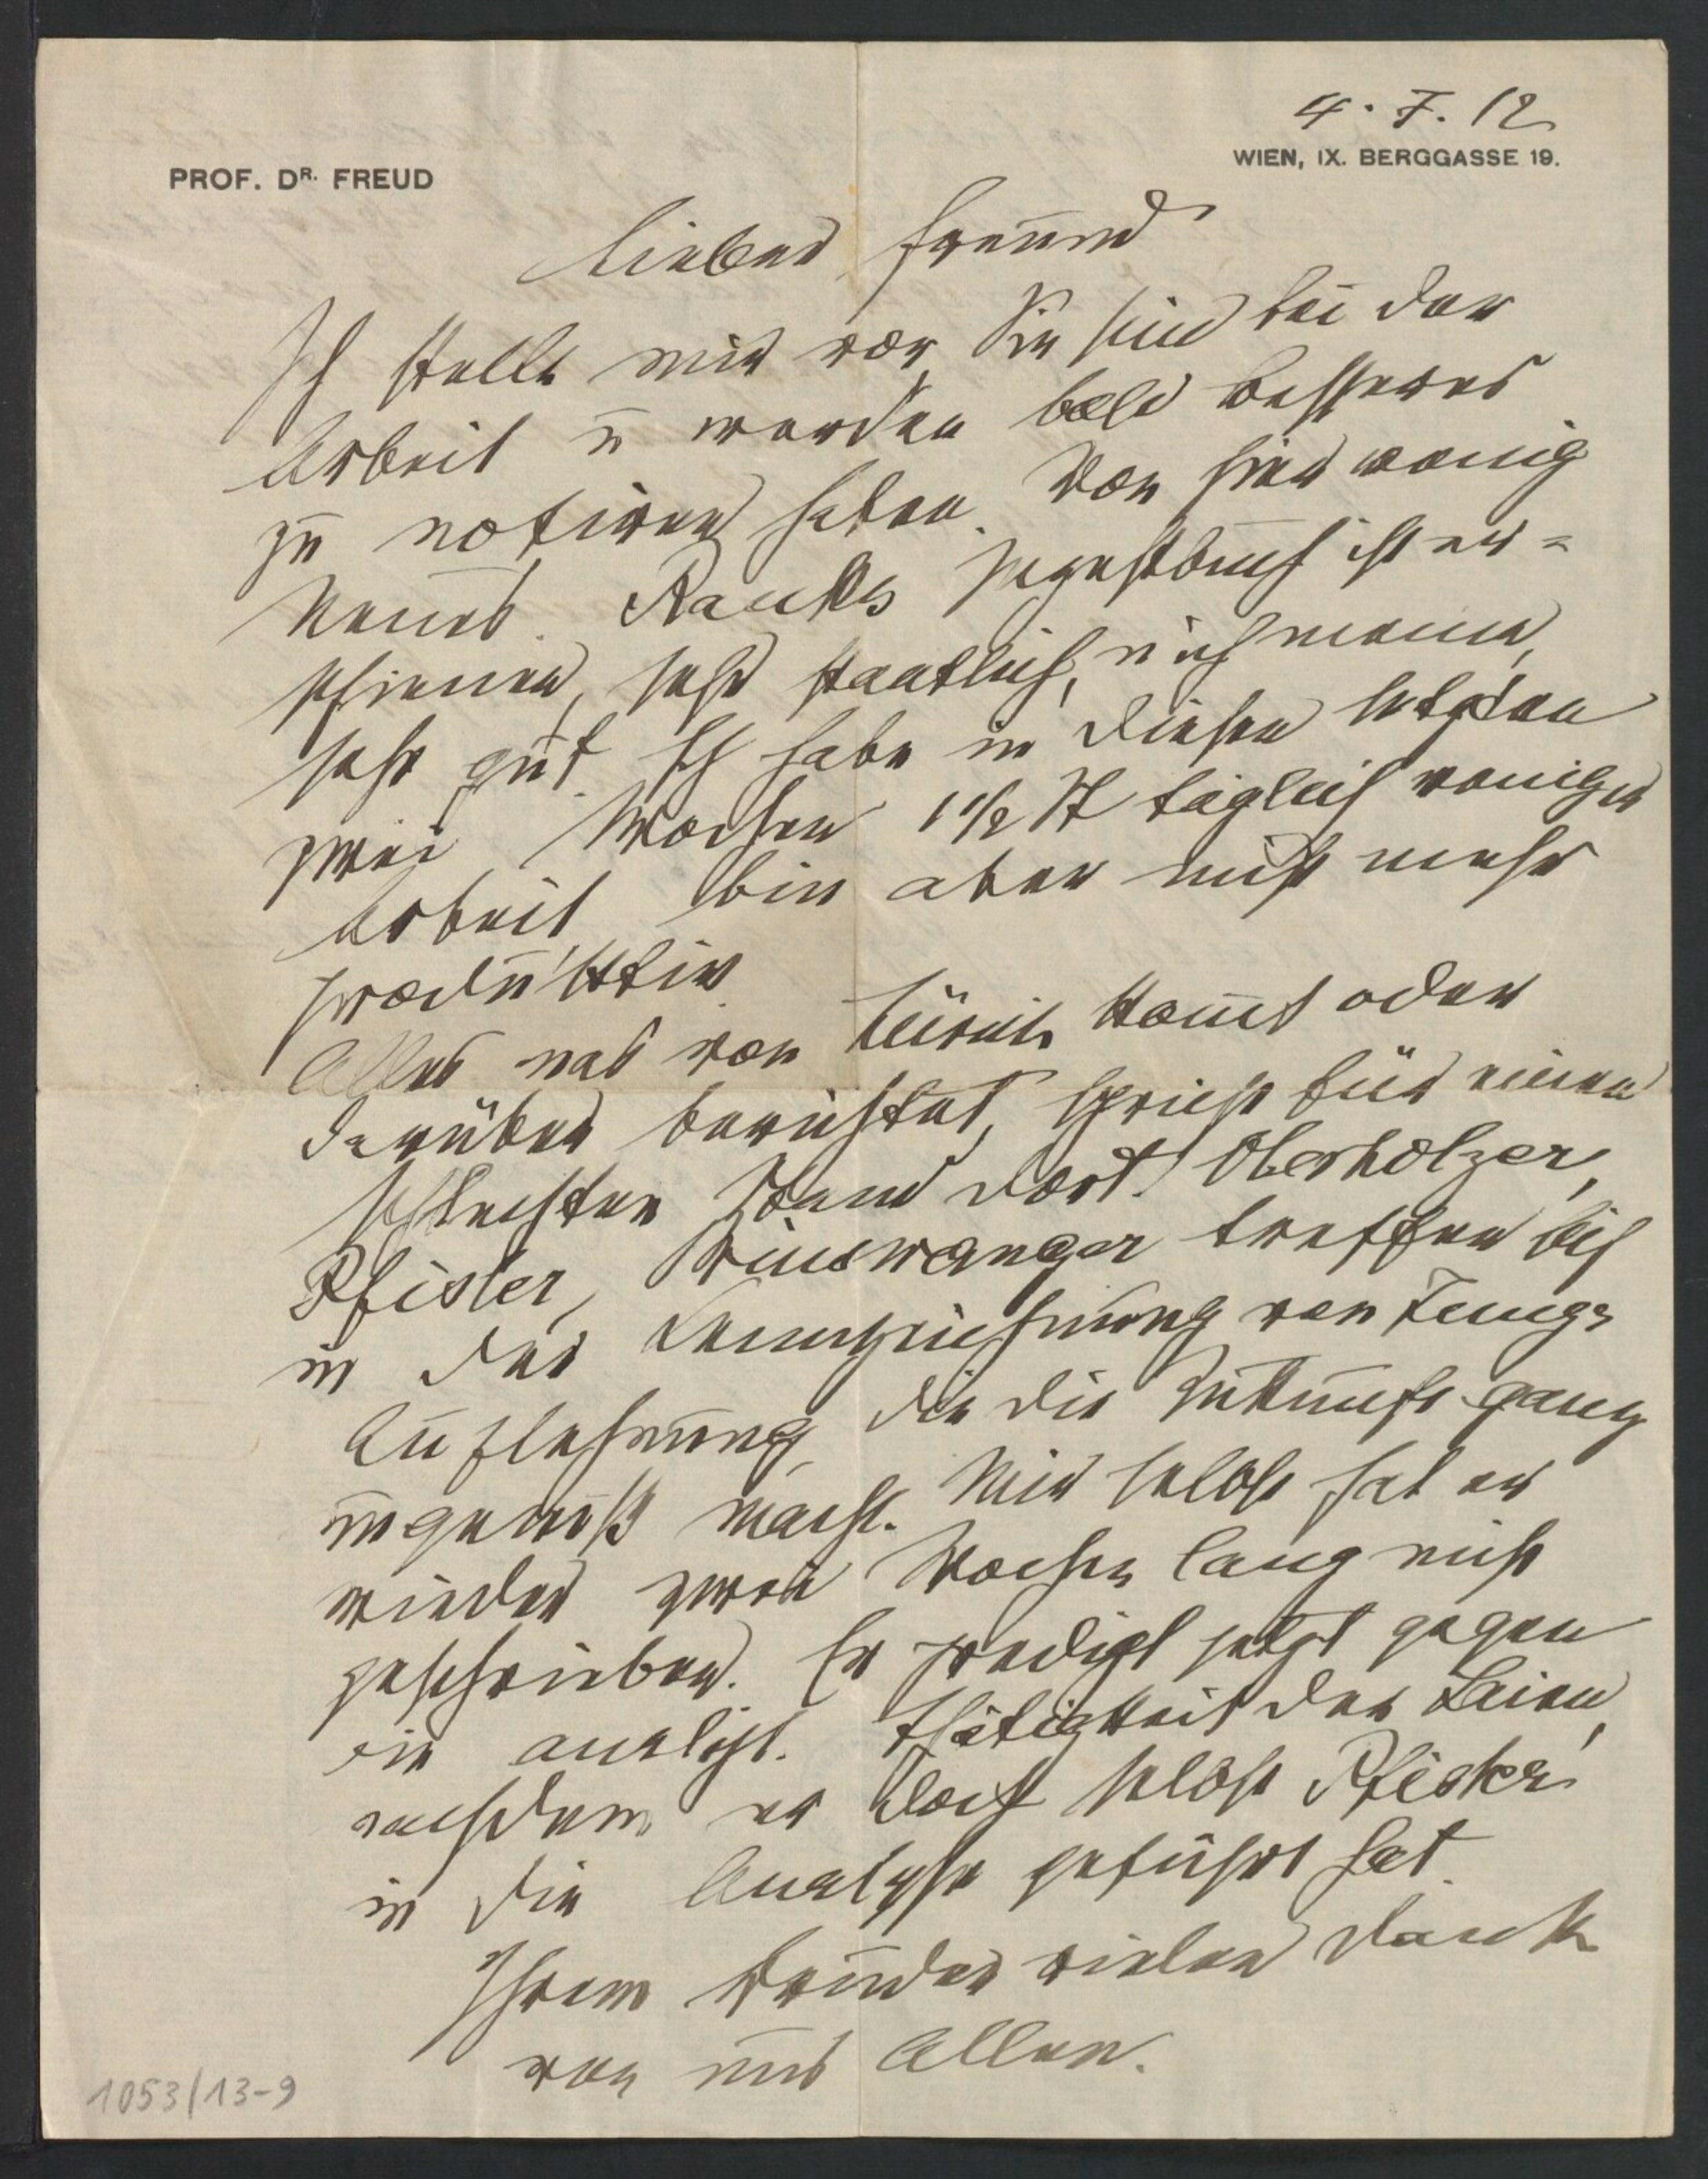 4. 7. 12
WIEN, IX. BERGGASSE 19.
PROF. DR. FREUD
Lieber Freund
Ich stelle mir vor, Sie sind bei der
Arbeit u werden bald besseres
zu notiren haben. Von hier wenig
Neues. Ranks Inzestbuch ist er=
schienen, sehr stattlich, u ich meine,
sehr gut. Ich habe in diesen letzten
zwei Wochen 1 1/2 St täglich weniger
Arbeit bin aber nicht mehr
produktiv.
Alles was von Zürich kommt oder
darüber berichtet, spricht für einen
schlechten Stand dort. Oberholzer,
Pfister, Binswanger treffen sich
in der Kennzeichnung von Jungs
Auflehnung, die die Zukunft ganz
ungewiß macht. Mir selbst hat er
wieder zwei Wochen lang nicht
geschrieben. Er predigt jetzt gegen
die analyt. Thätigkeit der Laien,
nachdem er doch selbst Pfister
in die Analyse geführt hat.
Ihrem Bruder vielen Dank
von uns Allen.
1053/13-9